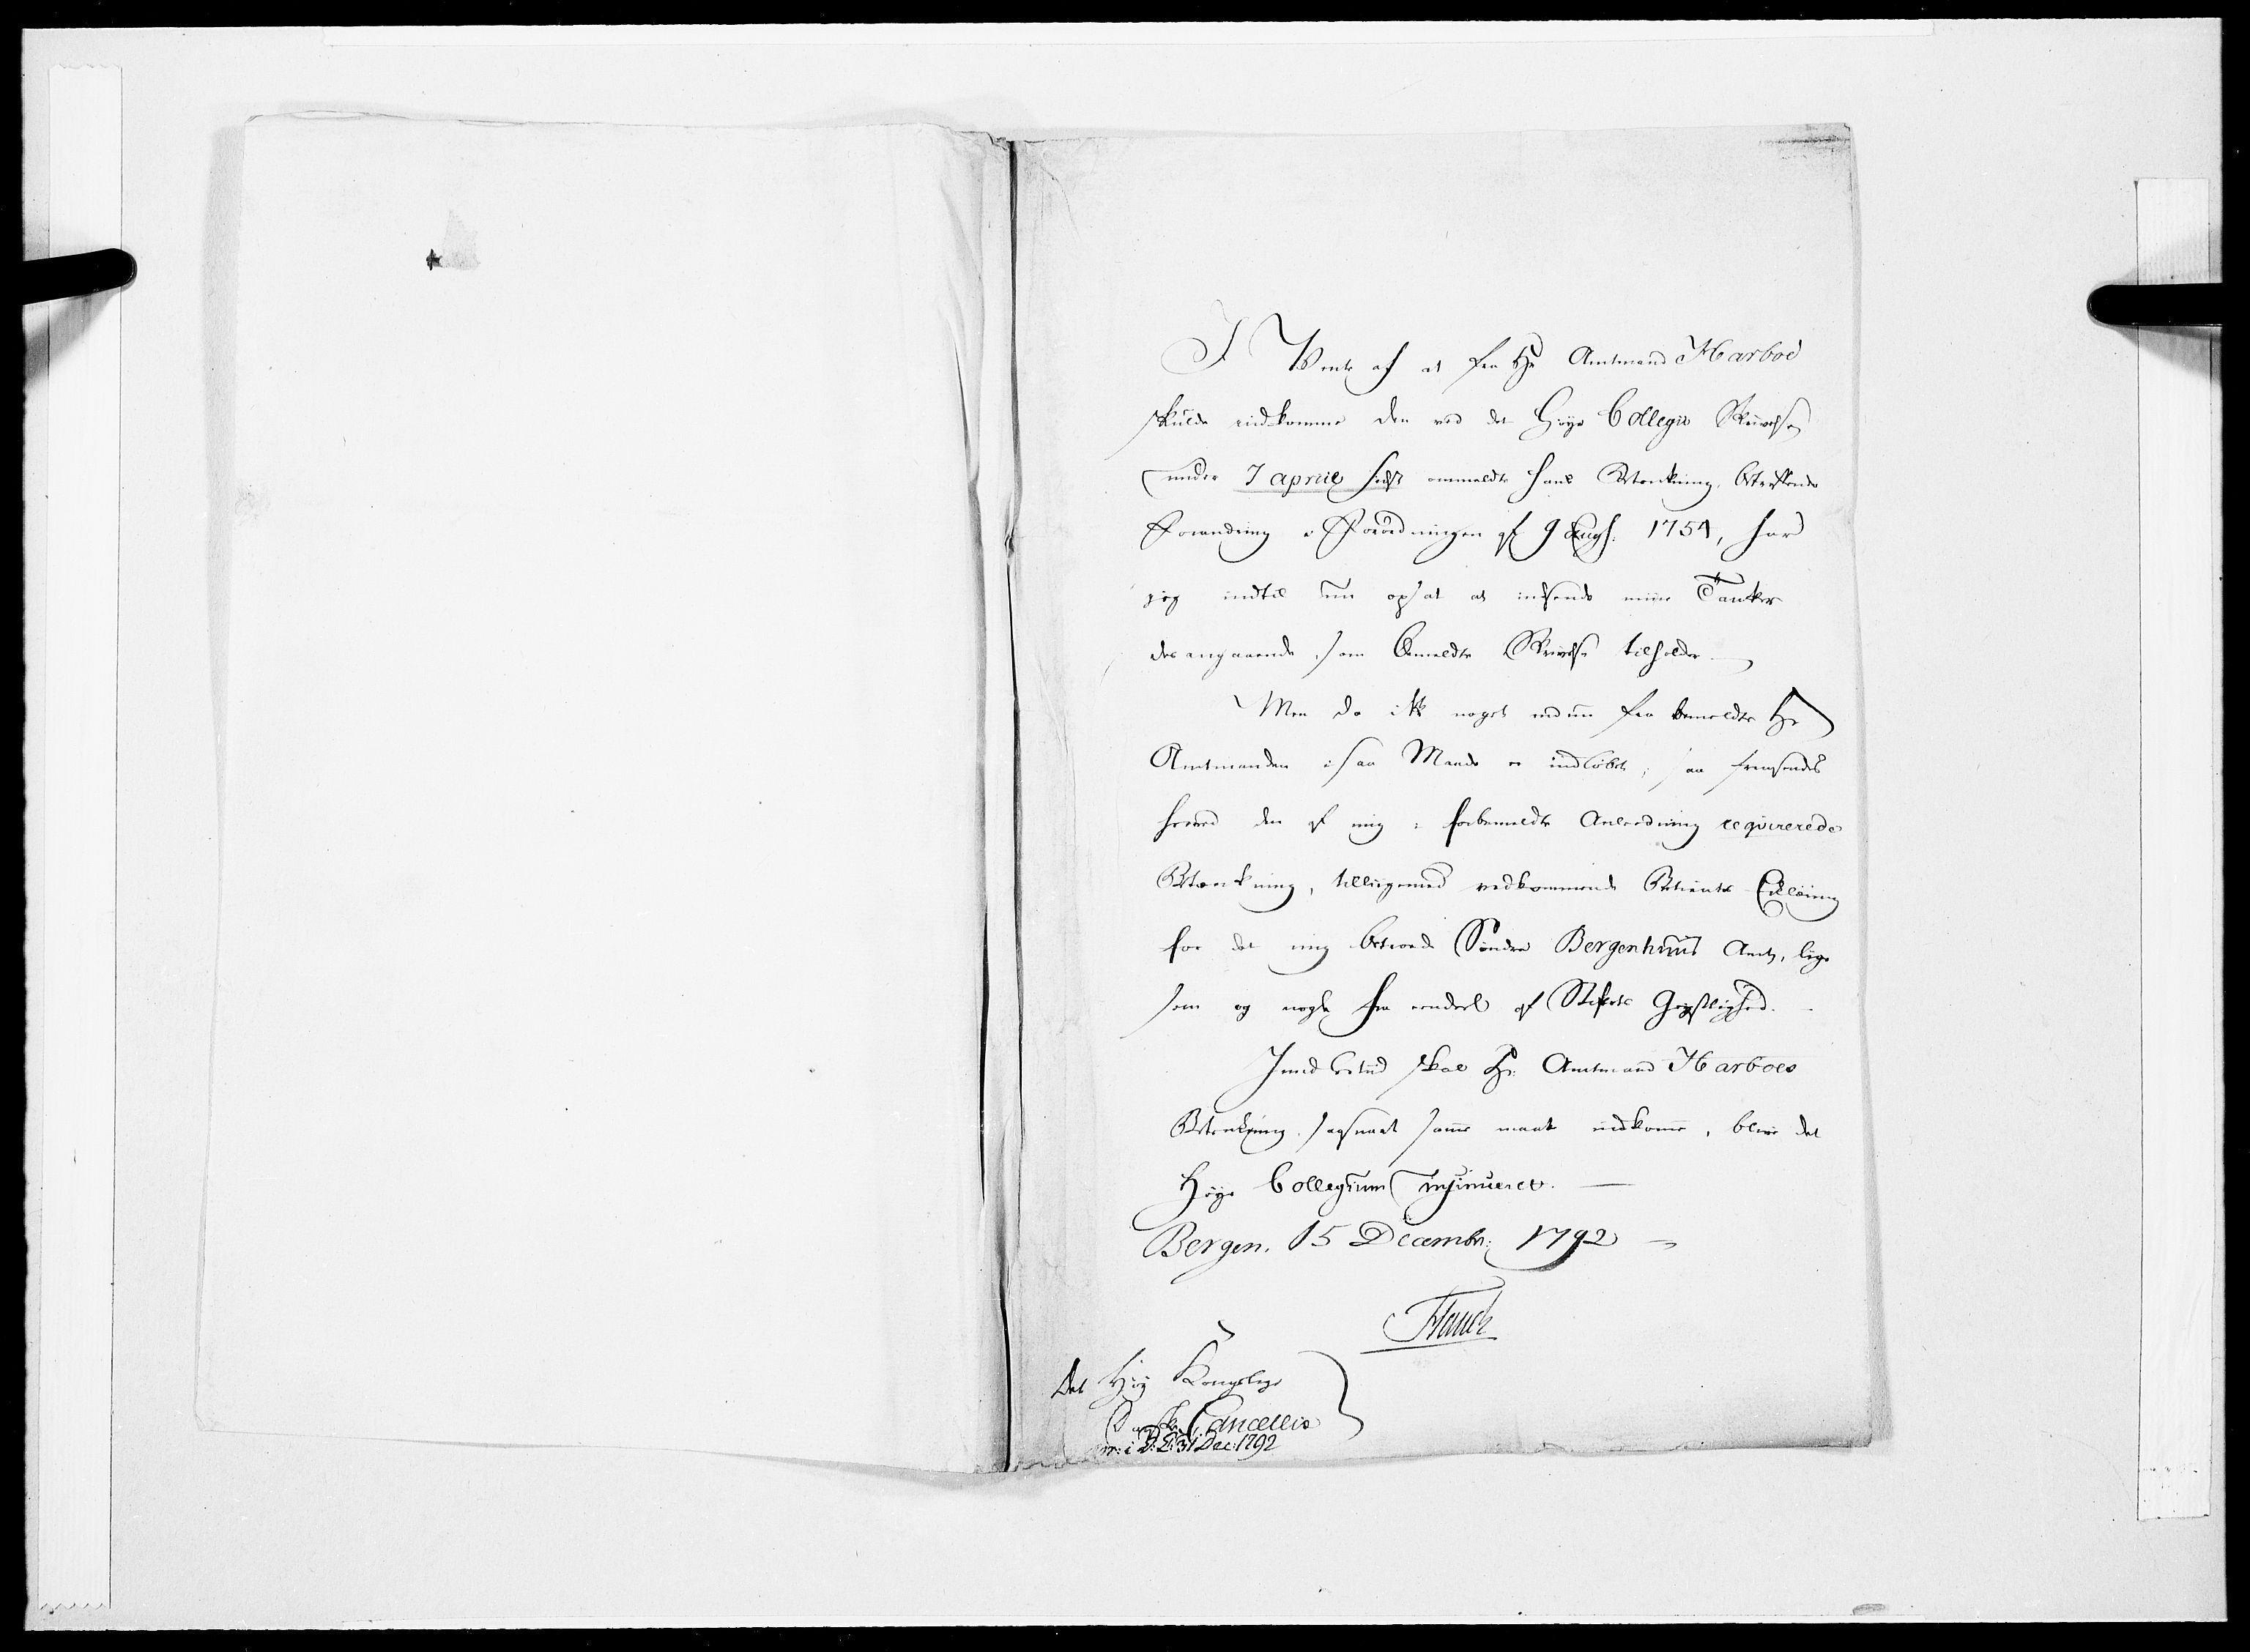 I Vente af at fra Hr Amtmand Harboe
skulde indkomme den ved det Høye Collegii Skrivelse
under 7 april sidst ommeldte hans Betænkning, betreffende
Forandring i Forordningen af 9 Augs: 1754, har
jeg indtil nu opsat at indsende mine Tanker
desangaaende, som bemeldte Skrivelse tilholder
Men da ikke noget endnu fra bemeldte Hr
Amtmanden i saa Maade er indløbet, saa fremsendes
herved den af mig i forbemeldte Anledning reqvirerede
Betænkning, tilligemed vedkommende Betients Erklæring
for det mig betroede Søndre Bergenhuus Amt, lige
som og nogle fra endeel af Stiftets Geystlighed.
Imidlertid skal Hr. Amtmand Harboes
Betænkning, saasnart samme maate indkomme, blive det
Høye Collegium insinueret.
Bergen. 15 Decembr: 1792
Hauch
Det Høy Kongelige
Danske Cancellie
31 Dec: 1792